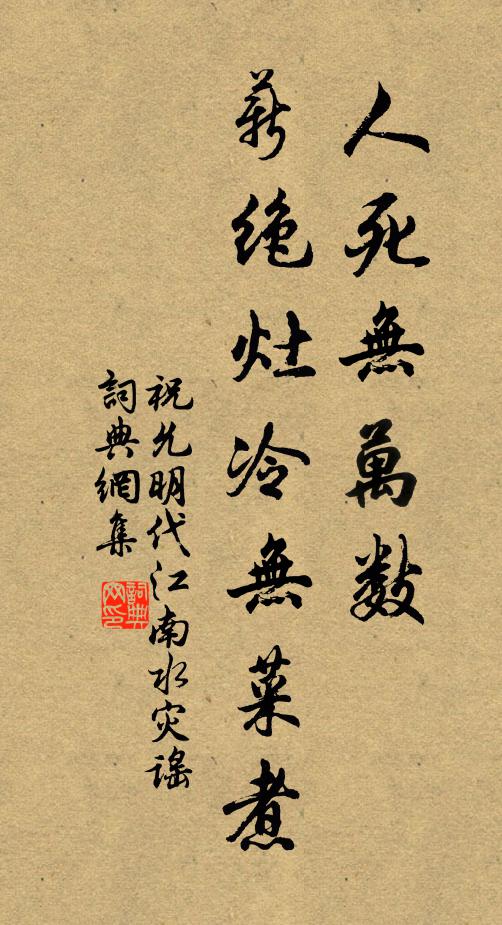 人死無萬數
薪绝灶冷無菜煮
祝允明代江南水灾謡
詞典網集
詞典网印